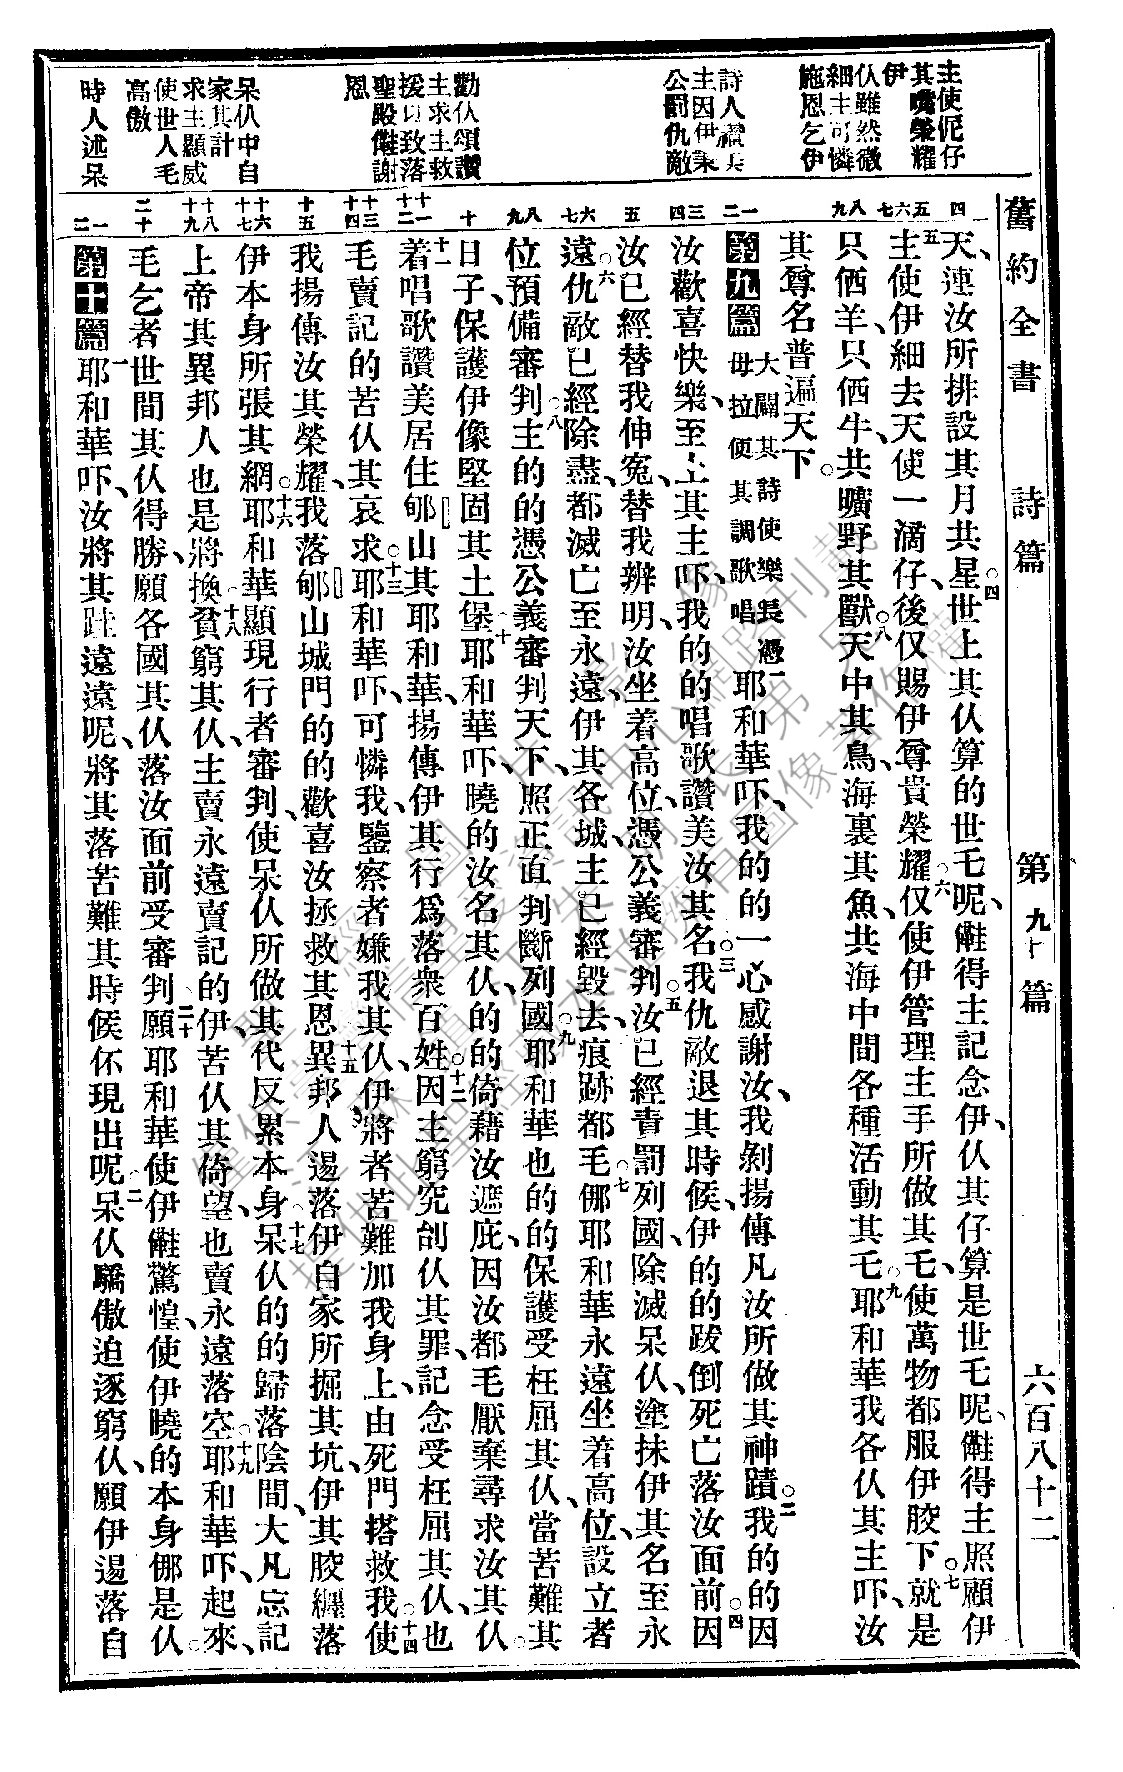 舊約全書 詩篇 第九十篇 六百八十二
主使伲仔
其嘴榮耀
伊
仈雖然微
細主可憐
施恩乞伊
詩人讚美
主因伊秉
公罰仇敵
勸仈頌讚
主求主救
援以致落
聖殿𠆧謝
恩
呆仈中自
家其計
求主顯威
使世人毛
高傲
時人述呆
四 天、連汝所排設其月共星、○四世上其仈算的世乇呢、𠆧得主記念伊、仈其仔、算是世乇呢、𠆧得主照顧伊
五六七 ○五主使伊細去天使一滴仔、後仅賜伊尊貴榮耀、○六仅使伊管理主手所做其乇、使萬物都服伊骹下、○七就是
八九 只仴羊、只仴牛、共曠野其獸、○八天中其鳥、海裏其魚、共海中間各種活動其乇、○九耶和華我各仈其主吓、汝
其尊名普遍天下。
一二 第九篇 大闢其詩使樂長憑母拉便其調歌唱 一耶和華吓、我的的一心感謝汝、我剝揚傳凡汝所做其神蹟。○二我的的因
三四 汝歡喜快樂、至上其主吓、我的的唱歌讚美汝其名、○三我仇敵退其時候、伊的的跋倒死亡落汝面前、○四因
五 汝已經替我伸冤、替我辨明、汝坐着高位、憑公義審判、○五汝已經責罰列國、除滅呆仈、塗抹伊其名至永
六七 遠、○六仇敵已經除盡、都滅亡至永遠、伊其各城主已經毀去、痕跡都毛、○七但耶和華永遠坐着高位、設立者
八九 位預備審判、○八主的的憑公義審判天下、照正直判斷列國、○九耶和華也的的保護受枉屈其仈、當苦難其
十 日子、保護伊像堅固其土堡、○十耶和華吓、曉的汝名其仈、的的倚藉汝遮庇、因汝都毛厭棄尋求汝其仈。
十一十二 十一着唱歌讚美居住郇山其耶和華、揚傳伊其行爲落衆百姓、○十二因主窮究刣仈其罪、記念受枉屈其仈、也
十三十四 毛賣記的苦仈其哀求、○十三耶和華吓、可憐我、鑒察者嫌我其仈、伊將者苦難加我身上、由死門搭救我、○十四使
十五 我揚傳汝其榮耀、我落郇山城門的的歡喜汝拯救其恩、○十五異邦人逿落伊自家所掘其坑、伊其骹纏落
十六十七 伊本身所張其網、○十六耶和華顯現行者審判、使呆仈所做其代反累本身、○十七呆仈的的歸落陰間、大凡忘記
十八十九 上帝其異邦人也是將換、○十八貧窮其仈、主賣永遠賣記的伊、苦仈其倚望、也賣永遠落空、○十九耶和華吓、起來、
二十 毛乞者世間其仈得勝、願各國其仈落汝面前受審判、○二十願耶和華使伊𠆧驚惶、使伊曉的本身但是仈。
一二 第十篇 一耶和華吓、汝將其跬遠遠呢、將其落苦難其時候伓現出呢、○二呆仈驕傲迫逐窮仈、願伊逿落自